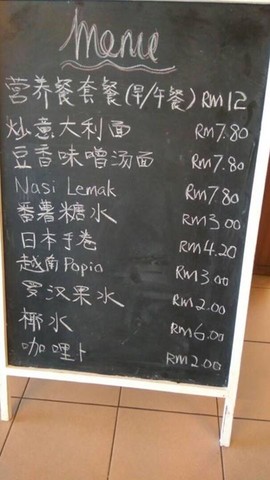 Menu
营养餐套餐(早/午餐) RM12
炒意大利面 RM7.80
豆香味噌汤面 RM7.80
Nasi Lemak RM7.80
番薯糖水 RM3.00
日本手卷 RM4.20
越南Popia RM3.00
罗汉果水 RM2.00
椰水 RM6.00
咖哩卜 RM2.00